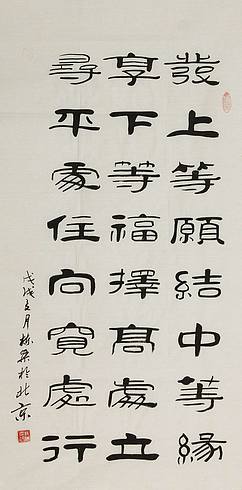 發上等願結中等緣
享下等福擇髙處立
尋平處住向寬處行
戊戌月於北京